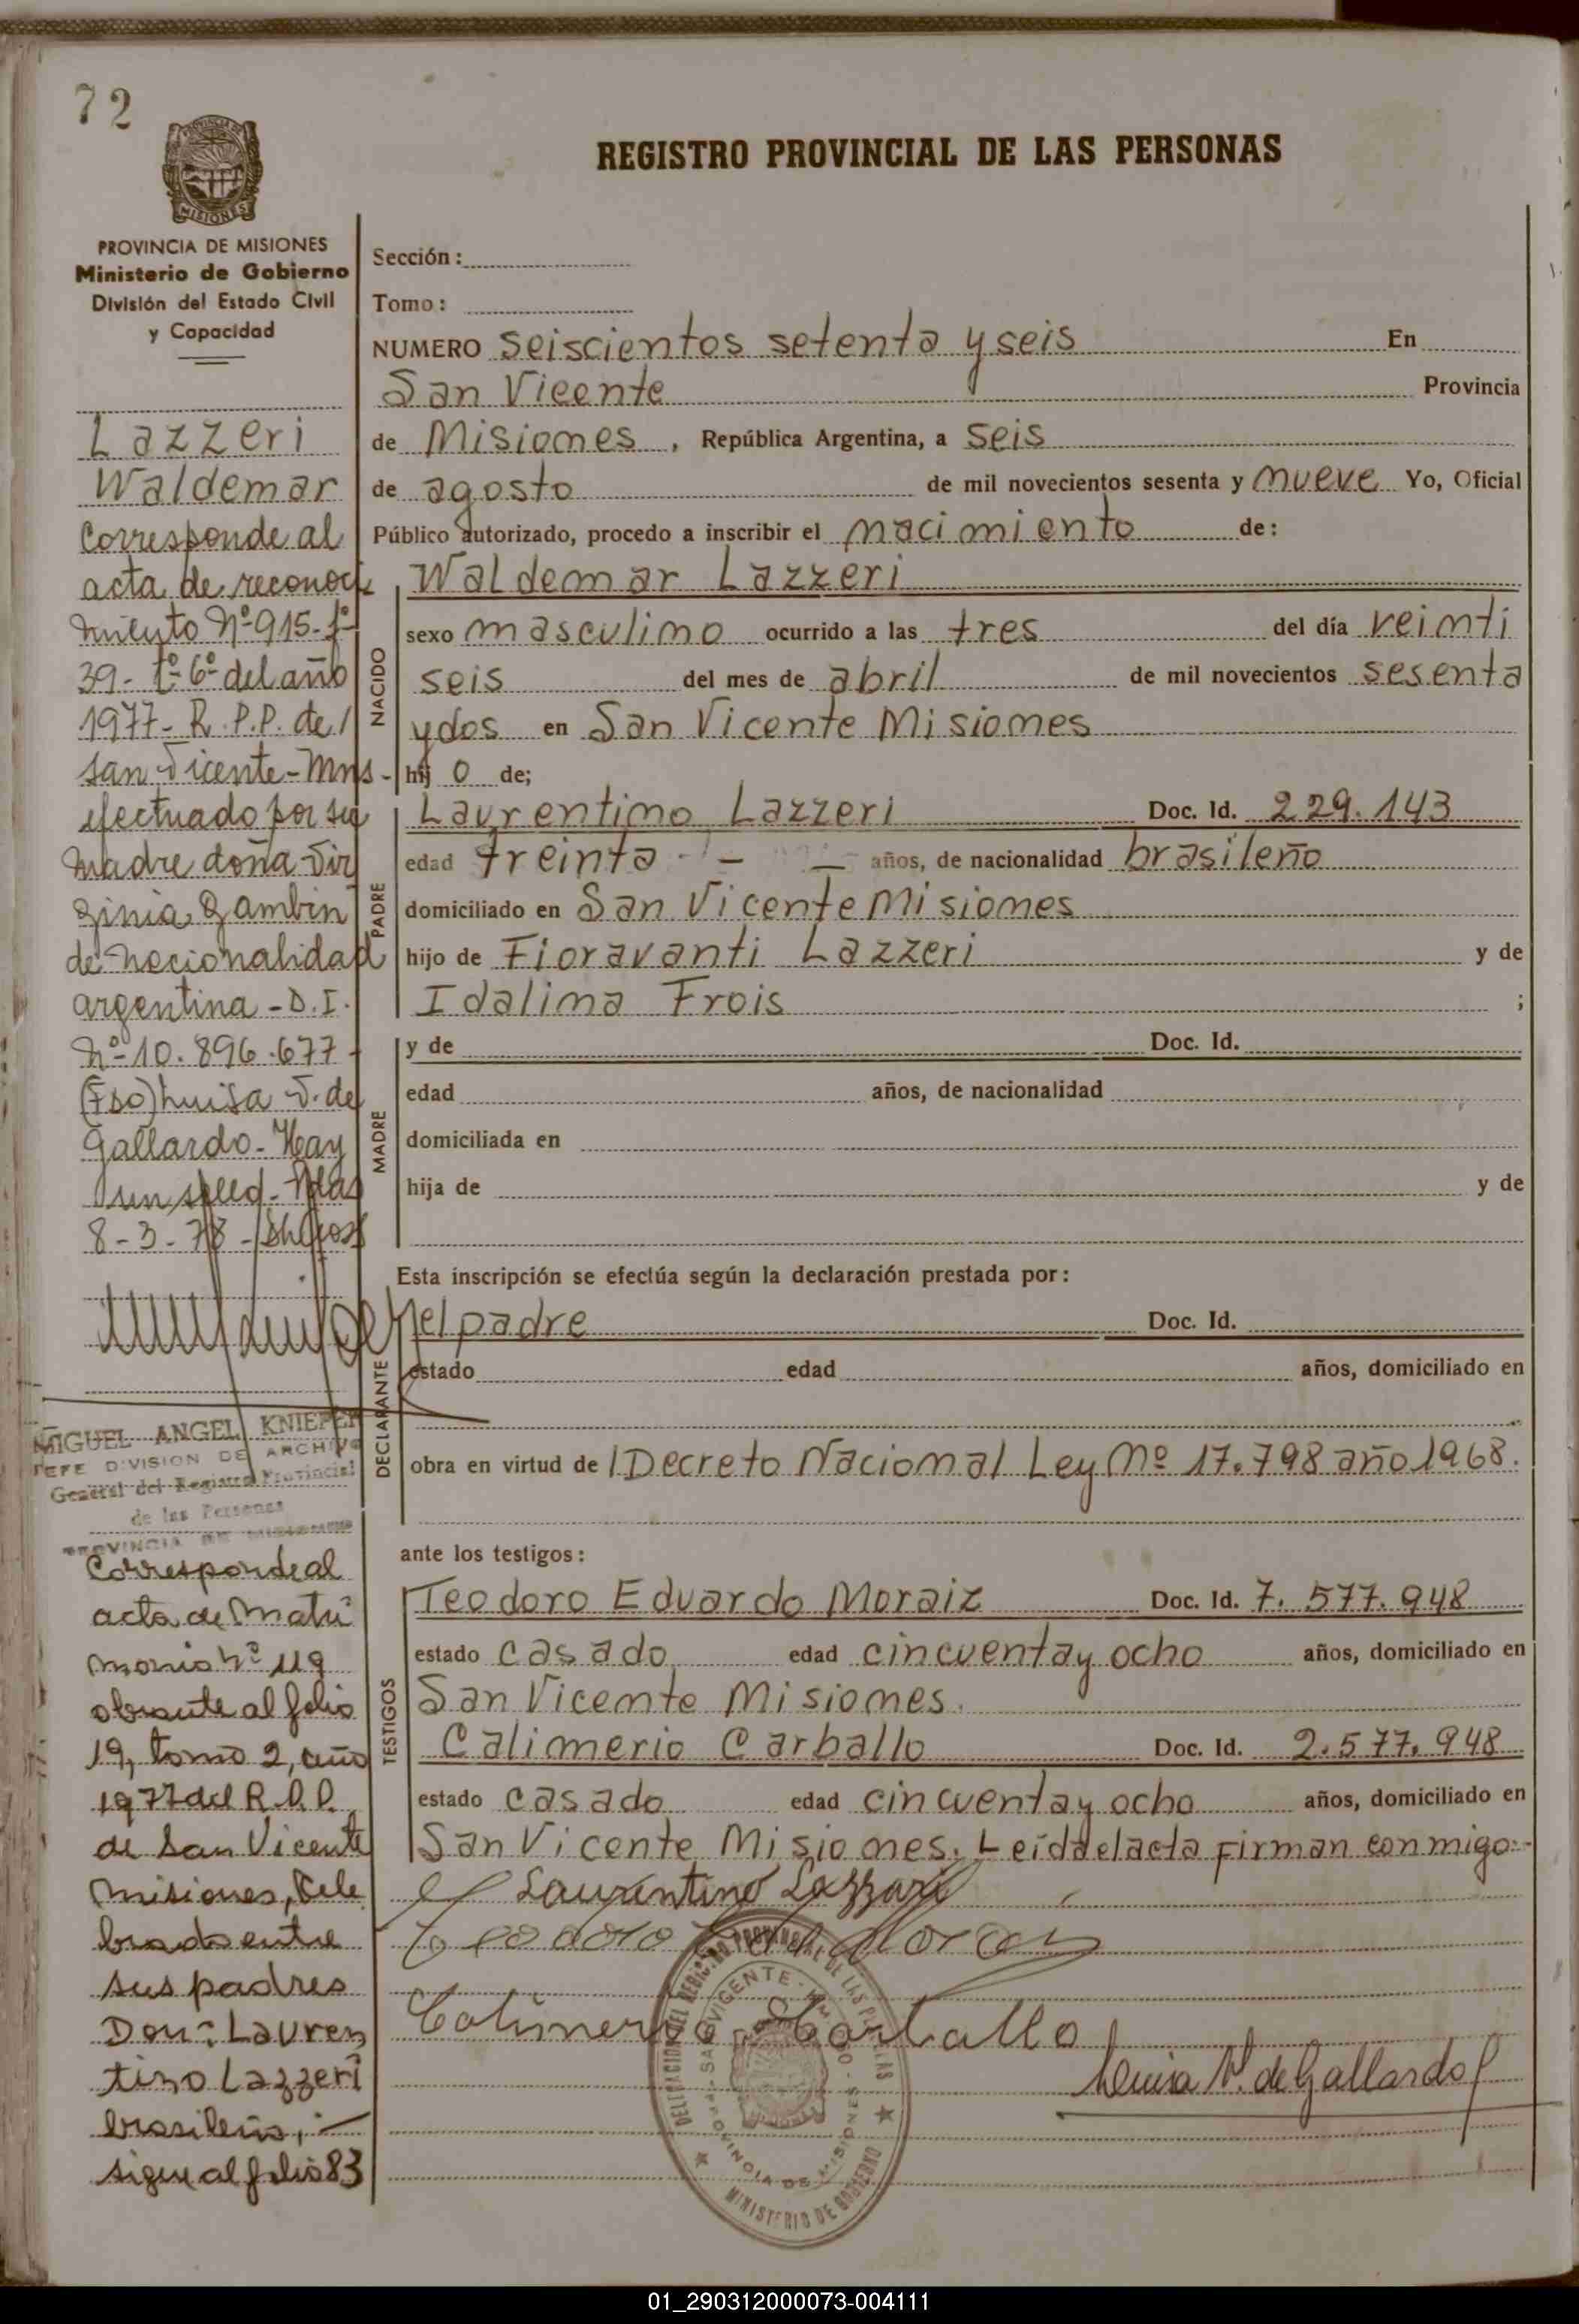 72
PROVINCIA DE MISIONES
REGISTRO PROVINCIAL DE LAS PERSONAS
PROVINCIA DE MISIONES
Ministerio de Gobierno
División del Estado Civil
y Capacidad
Lazzeri
Waldemar
Corresponde al
acta de reconoci
miento Nº 915-fº
39- tº 6º del año
1977- R.P.P. de
San Vicente-Mns-
efectuado por su
madre doña Vir
ginia Gambin
de nacionalidad
argentina - D.I.
Nº 10.896.677-
(Fdo) Luisa V. de
Gallardo - Hay
un sello - Pdas
8-3-78-
MIGUEL ANGEL KNIEFER
JEFE DIVISION DE ARCHIVO
General del Registro Provincial
de las Personas
PROVINCIA DE MISIONES
Corresponde al
acta de Matri
monio Nº 119
obrante al folio
19, tomo 2, año
1977 del R.P.P.
de San Vicente
Misiones, Cele
brado entre
sus padres
Don: Lauren
tino Lazzeri
brasileño, -
sigue al folio 83
Sección:
Tomo:
NUMERO seiscientos setenta y seis En
San Vicente Provincia
de Misiones, República Argentina, a seis
de agosto de mil novecientos sesenta y nueve Yo, Oficial
Público autorizado, procedo a inscribir el nacimiento de:
Waldemar Lazzeri
NACIDO
sexo masculino ocurrido a las tres del día veinti
seis del mes de abril de mil novecientos sesenta
y dos en San Vicente Misiones
hij o de;
PADRE
Laurentino Lazzeri Doc. Id. 229.143
edad treinta - - años, de nacionalidad brasileño
domiciliado en San Vicente Misiones
hijo de Fioravanti Lazzeri y de
Idalina Frois ;
MADRE
y de Doc. Id.
edad años, de nacionalidad
domiciliada en
hija de y de
Esta inscripción se efectúa según la declaración prestada por:
DECLARANTE
el padre Doc. Id.
estado edad años, domiciliado en
obra en virtud de Decreto Nacional Ley Nº 17.798 año 1968.
ante los testigos:
TESTIGOS
Teodoro Eduardo Moraiz Doc. Id. 7.577.948
estado casado edad cincuenta y ocho años, domiciliado en
San Vicente Misiones.
Calimerio Carballo Doc. Id. 2.577.948
estado casado edad cincuenta y ocho años, domiciliado en
San Vicente Misiones. Leída el acta firman conmigo:-
Laurentino Lazzari
Teodoro
Calimerio Carballo
Luisa V. de Gallardo
DELEGACION DEL REGISTRO PROVINCIAL DE LAS PERSONAS
SAN VICENTE
PROVINCIA DE MISIONES
MINISTERIO DE GOBIERNO
01_290312000073-004111